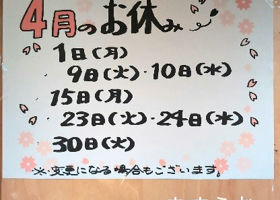 4月のお休み
1日(月)
9日(火)・10日(水)
15日(月)
23日(火)・24日(水)
30日(火)
※変更になる場合もございます。